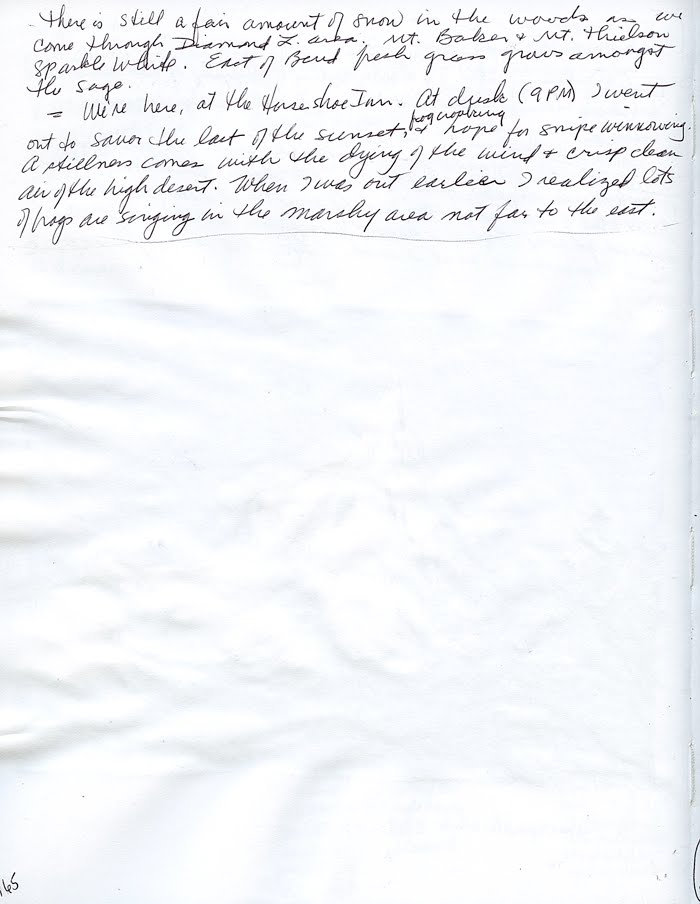 There is still a fair amount of snow in the woods as we
come through Diamond L. area. Mt. Baker & Mt. Thielson
sparkle white. East of Bend fresh grass grows amongst
the sage.
= We're here, at the Horse shoe Inn. At dusk (9PM) I went
out to savor the last of the sunset, & hope for snipe winnowing.
A stillness comes with the dying of the wind & crisp clean
air of the high desert. When I was out earlier I realized lots
of frogs are singing in the marshy area not far to the east.
165